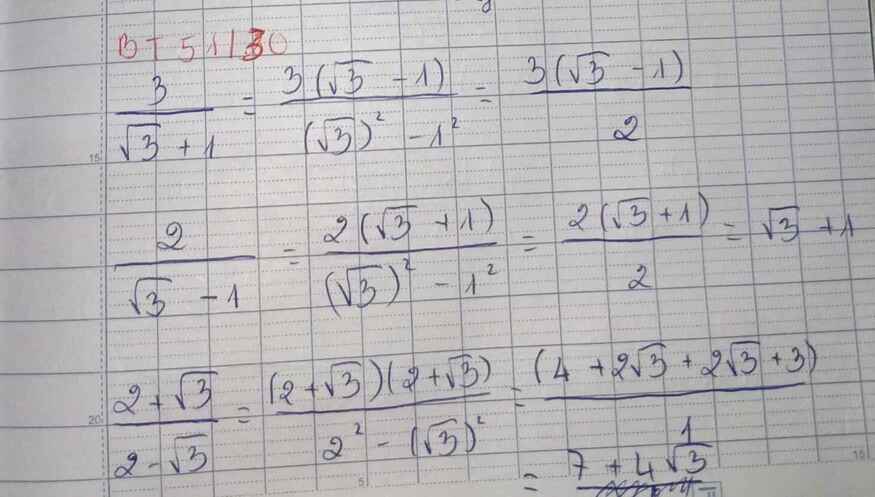 BT 51/30
3/(√3 + 1) = 3(√3 - 1)/((√3)² - 1²) = 3(√3 - 1)/2
2/(√3 - 1) = 2(√3 + 1)/((√3)² - 1²) = 2(√3 + 1)/2 = √3 + 1
(2 + √3)/(2 - √3) = (2 + √3)(2 + √3)/(2² - (√3)²) = (4 + 2√3 + 2√3 + 3)/1
= 7 + 4√3
15
20
5
10